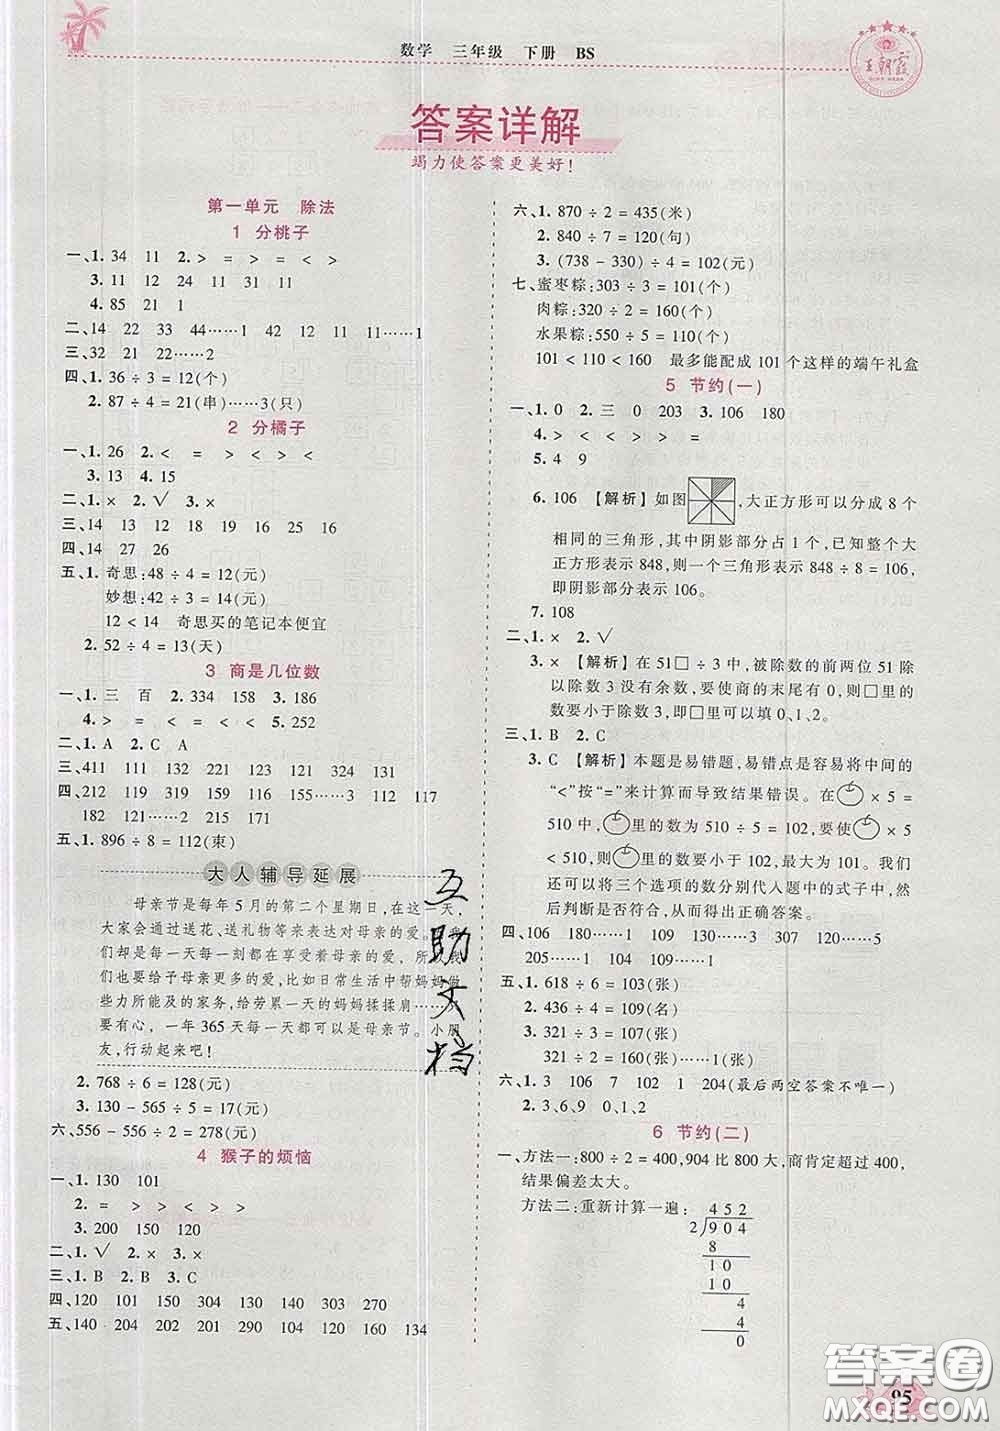 数学　三年级　下册　BS
王朝霞
答案详解
竭力使答案更美好!
第一单元　除法
1 分桃子
一、1. 34　11　2. >　=　>　=　<　>
3. 11　12　24　11　31　11
4. 85　21　1
二、14　22　33　44……1　42　12　11　11……1
三、32　21　22……2
四、1. 36÷3=12(个)
2. 87÷4=21(串)……3(只)
2 分橘子
一、1. 26　2. <　=　>　<　>　<
3. 13　4. 15
二、1. ×　2. √　3. ×
三、14　13　12　18　19　16　25　16
四、14　27　26
五、1. 奇思:48÷4=12(元)
妙想:42÷3=14(元)
12<14　奇思买的笔记本便宜
2. 52÷4=13(天)
3 商是几位数
一、1. 三　百　2. 334　158　3. 186
4. >　=　<　=　<　<　5. 252
二、1. A　2. C　A
三、411　111　132　221　123　121　324　131
四、212　119　319　158　116　155……3　112　117
182　121……2　215　171
五、1. 896÷8=112(束)
大人辅导延展
母亲节是每年5月的第二个星期日,在这一天,
大家会通过送花、送礼物等来表达对母亲的爱。我
们却每年每一刻都在享受着母亲的爱,所以大家
也要给予母亲更多的爱,比如日常生活中帮妈妈做
些力所能及的家务,给劳累一天的妈妈揉揉肩……只
要有心,一年365天每一天都可以是母亲节。小朋
友,行动起来吧!
2. 768÷6=128(元)
3. 130-565÷5=17(元)
六、556-556÷2=278(元)
4 猴子的烦恼
一、1. 130　101
2. =　>　>　>　<　>　>
3. 200　150　120
二、1. √　2. ×　3. ×
三、1. B　2. B　3. C
四、120　101　150　304　130　103　270
五、140　204　202　290　104　120　160　134
六、1. 870÷2=435(米)
2. 840÷7=120(句)
3. (738-330)÷4=102(元)
七、蜜枣粽:303÷3=101(个)
肉粽:320÷2=160(个)
水果粽:550÷5=110(个)
101<110<160　最多能配成101个这样的端午礼盒
5 节约(一)
一、1. 0　2. 三　0　203　3. 106　180
4. >　<　<　>　>　=
5. 4　9
6. 106　【解析】如图,大正方形可以分成8个
相同的三角形,其中阴影部分占1个,已知整个大
正方形表示848,则一个三角形表示848÷8=106,
即阴影部分表示106。
7. 108
二、1. ×　2. √
3. ×　【解析】在51□÷3中,被除数的前两位51除
以除数3没有余数,要使商的末尾有0,则□里的
数要小于除数3,即□里可以填0、1、2。
三、1. B　2. C
3. C　【解析】本题是易错题,易错点是容易将中间的
“<”按“=”来计算而导致结果错误。在○×5=
510中,○里的数为510÷5=102,要使○×5
<510,则○里的数要小于102,最大为101。我们
还可以将三个选项的数分别代入题中的式子中,然
后判断是否符合,从而得出正确答案。
四、106　180……1　109　130……3　307　120……5
205……1　104　109……1
五、1. 618÷6=103(张)
2. 436÷4=109(名)
3. 321÷3=107(张)
321÷2=160(张)……1(张)
六、1. 3　106　7　102　1　204(最后两空答案不唯一)
2. 3、6、9　0、1、2
6 节约(二)
一、方法一:800÷2=400,904比800大,商肯定超过400,
结果偏差太大。
方法二:重新计算一遍:
4 5 2
2 ) 9 0 4
8
1 0
1 0
4
4
0
互助文档
答案圈
MXQE.COM
95